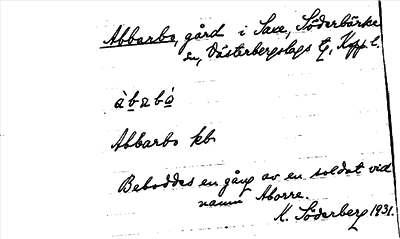 Abbarbo, gård i Saxe, Söderbärke
sn, Västerbergslags tg, Kopp. l.
àbabó
Abbarbo kb
Beboddes en gång av en soldat vid
namn Aborre.
K. Söderberg 1931.